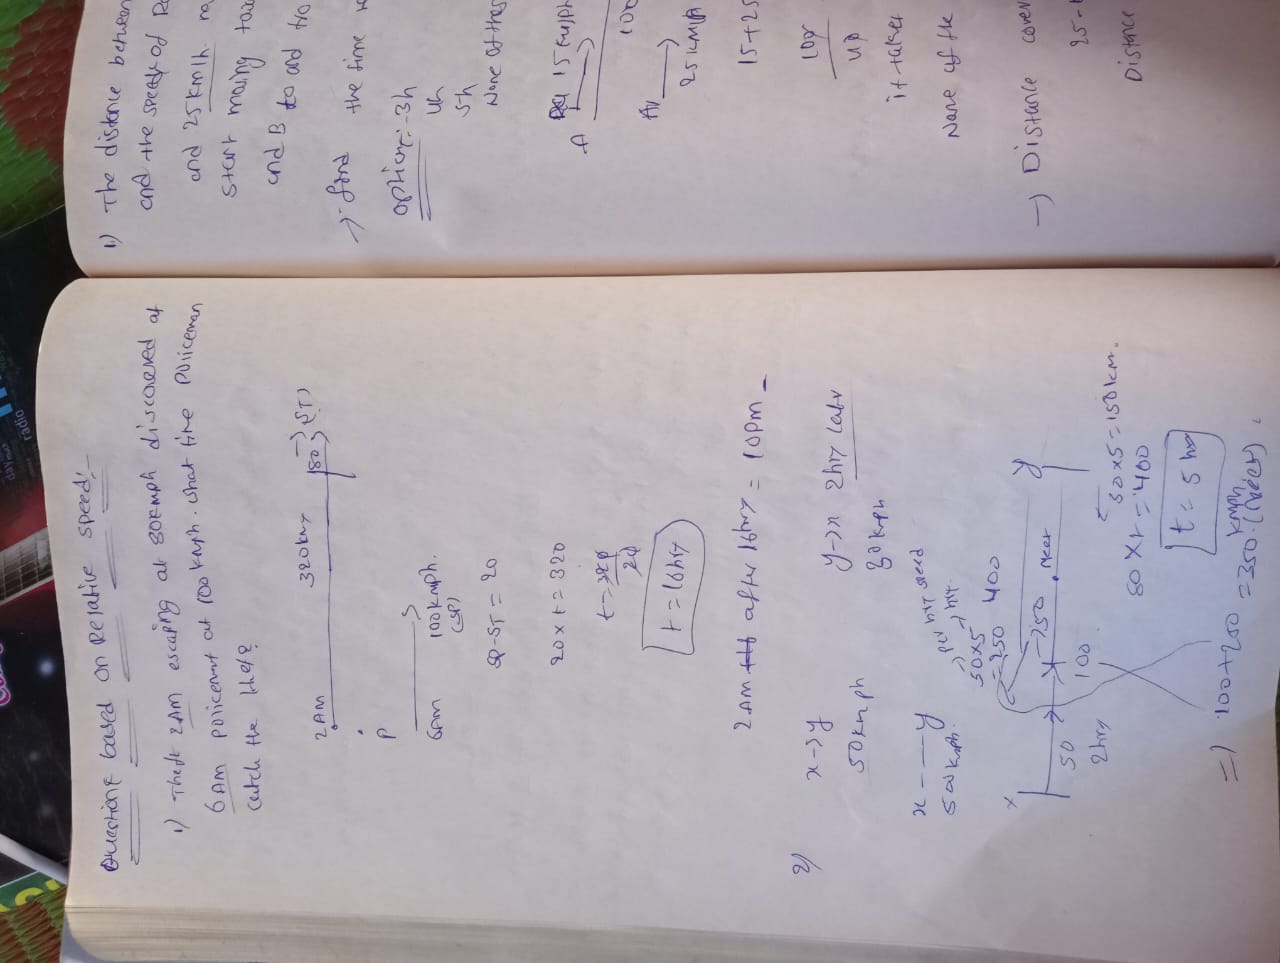 Questions based on Relative speed:-
1) Theft 2AM escaping at 80kmph discovered at
6AM policemnt at 100 kmph. what time policeman
catch the theft?
2AM 320km 80 (ST)
P
6AM 100kmph.
(SP)
SP-ST = 20
20 x t = 320
t = 320/20
t = 16hrs
2AM after 16hrs = 10PM -
2) x -> y y -> x 2hrs later
50kmph 30kmph
x --- y
50kmph.
50x5
= 250 400
x 50 250 meet y
2hrs 100
30x5 = 150km.
80 x t = 400
t = 5 hrs
=) 100+250 = 350 kmph (meet).
1) The distance between
and the speeds of
and 25 km/h
start moving
and B to and
-) find the time
option:- 3h
4h
5h
None of these
A 15 km/ph
100
25 kmph
15+25
it taken
None of the
-) Distance cover
25
Distance
radio